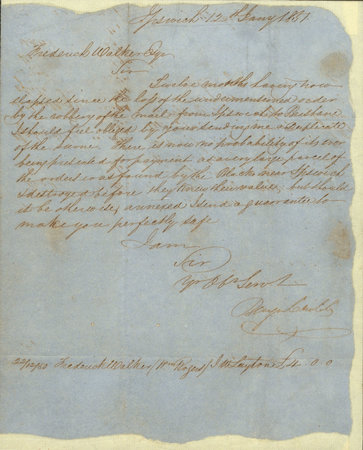 Ipswich 12th Jany 1851.
Frederick Walker Esqr
Sir
Twelve months having now
elapsed since the loss of the undermentioned order
by the robbery of the mail from Ipswich to Brisbane
I should feel obliged by your sending me a duplicate
of the same. There is now no probability of its ever
being presented for payment as a very large parcel of
the orders was found by the Blacks near Ipswich
& destroyed before they knew their value; but should
it be otherwise, annexed I send a guarantee to
make you perfectly safe
I am
Sir
Yr Obt Servt
Benj
Frederick Walker / Wm Rogers / J W Layton £4. 0. 0